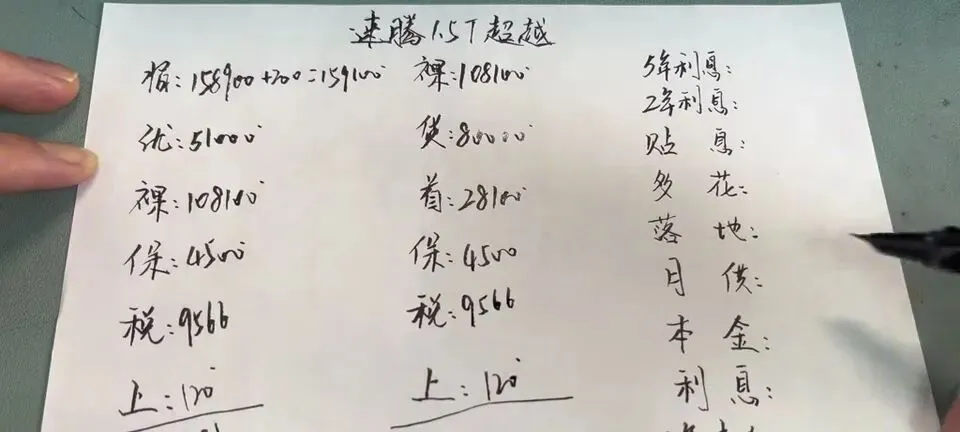 速腾1.5T超越
指:158900+200=159100
优:51000
裸:108100
保:4500
税:9566
上:120
裸:108100
贷:80000
首:28100
保:4500
税:9566
上:120
5年利息:
2年利息:
贴息:
多花:
落地:
月供:
本金:
利息: